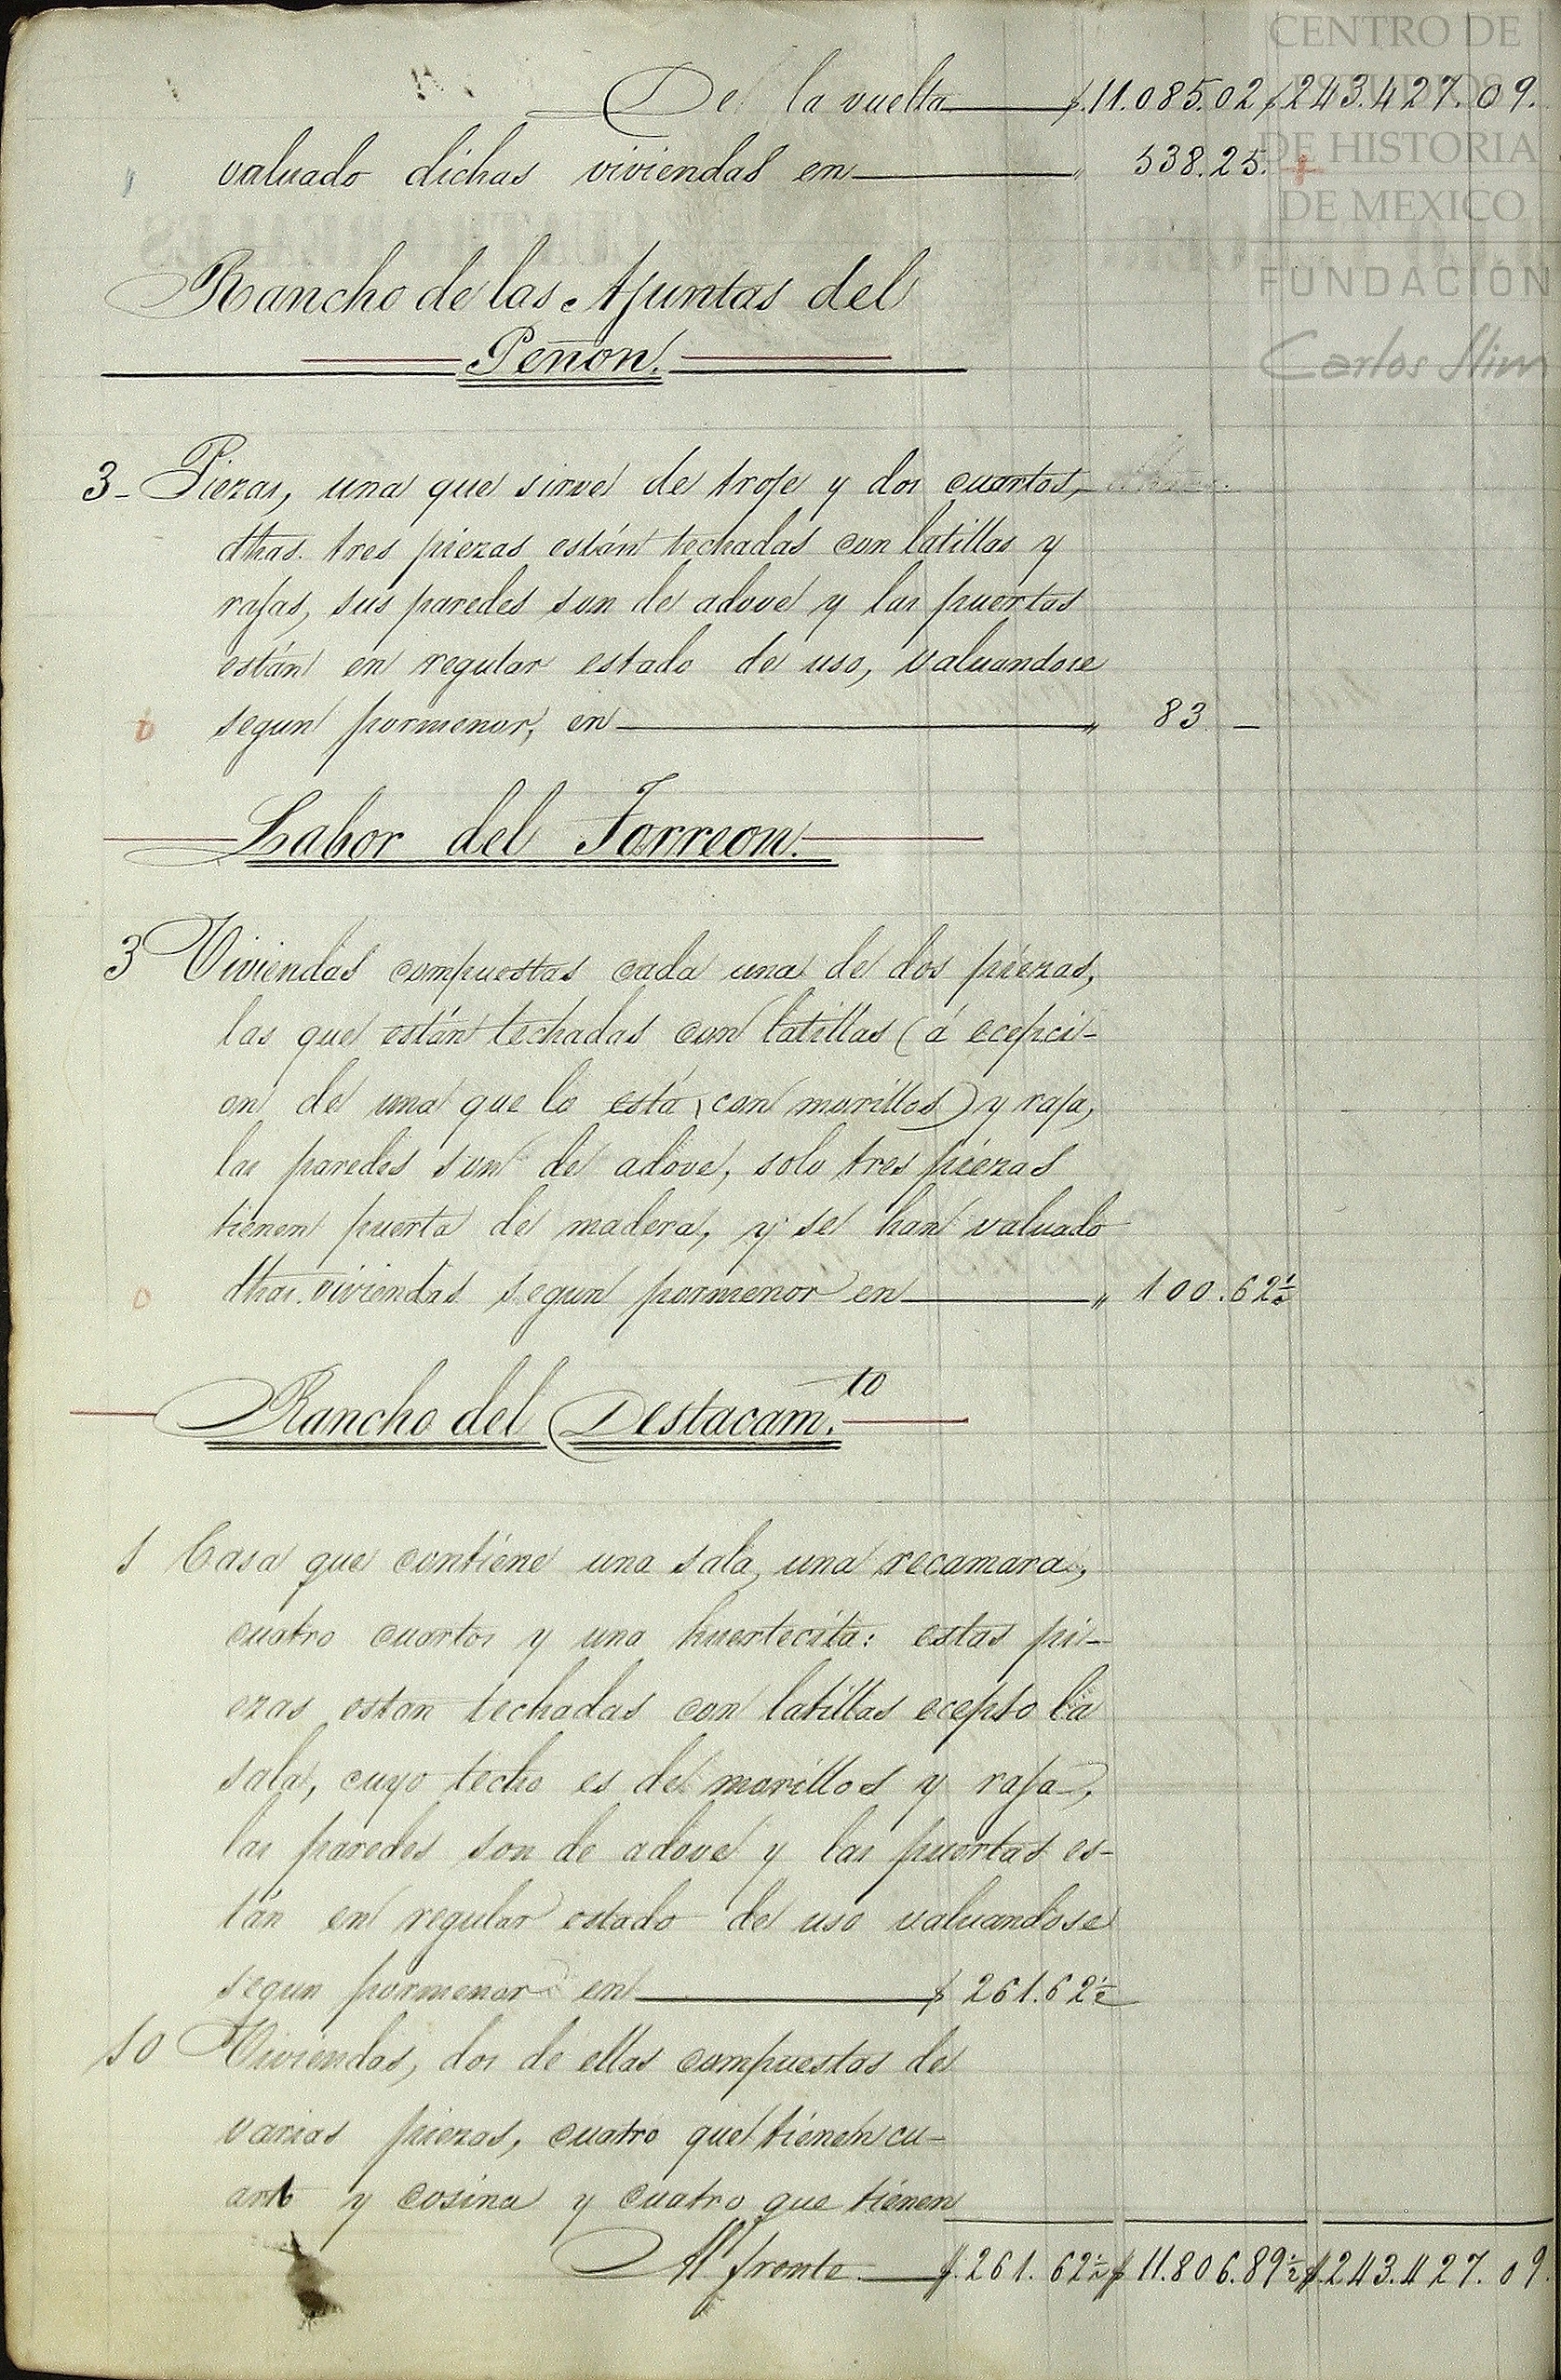 CENTRO DE
ESTUDIOS
DE HISTORIA
DE MEXICO
FUNDACIÓN
Carlos Slim
De la vuelta $.11.085.02 $243.427.09.
valuado dichas viviendas en " 538.25.
Rancho de las Ajuntas del
Peñon.
3- Piezas, una que sirve de troje y dos cuartos,
dhas. tres piezas están techadas con latillas y
rajas, sus paredes son de adove y las puertas
están en regular estado de uso, valuandose
segun pormenor, en " 83. —
Labor del Torreon.
3 Viviendas compuestas cada una de dos piezas,
las que están techadas con latillas (á ecepci-
on de una que lo está con morillos) y raja,
las paredes son de adove, solo tres piezas
tienen puerta de madera, y se han valuado
dhas. viviendas segun pormenor en " 100.62½
Rancho del Destacam.to
1 Casa que contiene una sala, una recamara,
cuatro cuartos y una huertecita: estas pi-
ezas estan techadas con latillas ecepto la
sala, cuyo techo es de morillos y raja,
las paredes son de adove y las puertas es-
tán en regular estado de uso valuandose
segun pormenor en $ 261.62½
10 Viviendas, dos de ellas compuestas de
varias piezas, cuatro que tienen cu-
arto y cosina y cuatro que tienen
Al frente $.261.62½ $ 11.806.89½ $.243.427.09.